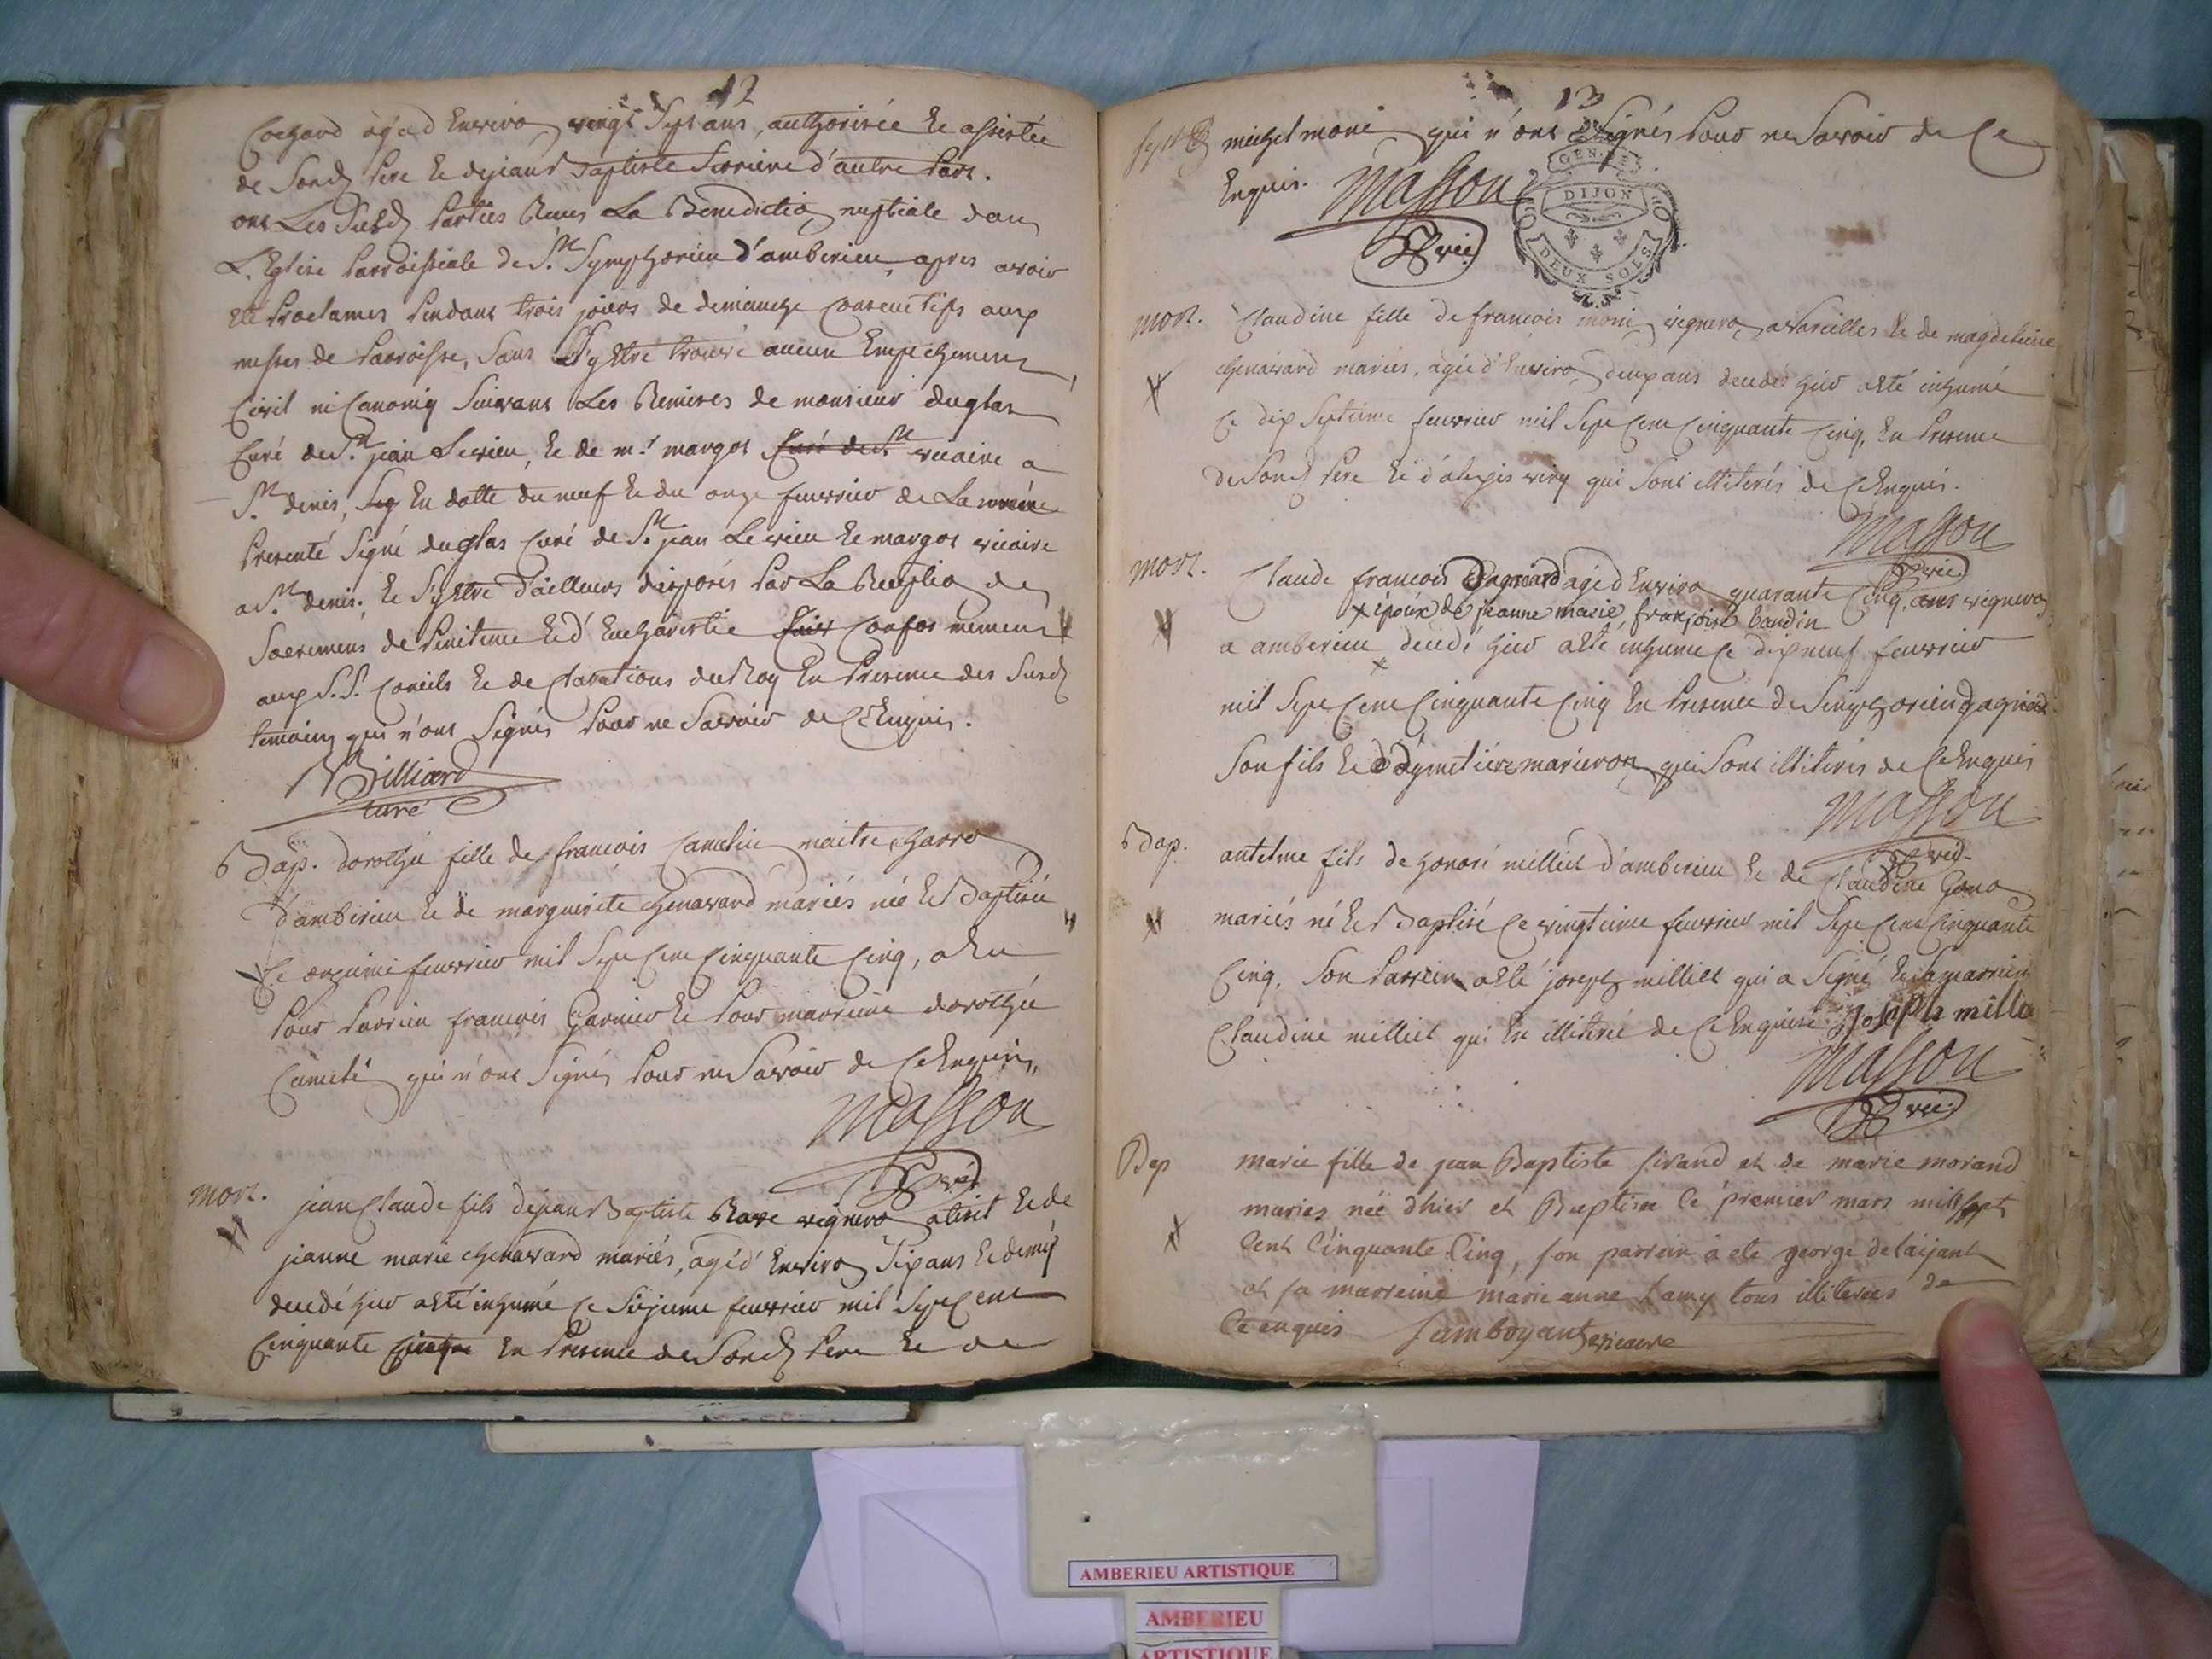 12
Cochard agéed Enviro vingt Sept ans, authorisée Et assistée
de Sond Pere Et dejean Baptiste Serriere d'autre Part.
ont Les Susd Parties Reçus La Benediction nuptiale dans
L'Eglise Parroissiale de St Symphorien d'amberieu apres avoir
Eté Proclames Pendant trois jours de dimanche Consecutifs aux
messes de Parroisse, Sans S'y Estre trouvé aucun Empechement
Civil ni Canoniq Suivant Les Remises de monsieur duglas
Curé de St jean Levieu, Et de mr margot vicaire a
St denis, En datte du neuf Et du onze feuvrier de La
Presente Signé duglas Curé de St jean Le vieu Et margot vicaire
a St denis. Et S'y Estre d'ailleurs disposés Par La Reception des
Sacremens de Penitence Et d'Eucharistie Conformement
aux S.S. Conciles Et declarations du Roy En Presence des Susd
temoins qui n'ont Signés Pour ne Savoir de Ce Enquis.
Billiard
curé
Bap. dorothée fille de francois Cametin maitre charro
d'amberieu Et de marguerite chenavard mariés née Et Baptisée
Ce onzieme feuvrier mil Sept Cent Cinquante Cinq, a Eu
Pour Parrein francois Garnier Et Pour marreine dorothée
qui n'ont Signés Pour ne Savoir de Ce Enquis,
Masson
vic
mort. jean Claude fils dejean Baptiste Rave vignero Et de
jeanne marie chenavard mariés, agé d'Enviro Six ans Et demÿ
decedé hier a Eté inhumé Ce Seizieme feuvrier mil Sept Cent
Cinquante En Presence de Sond Pere Et de
13
michel moni qui n'ont Signés Pour ne Savoir de Ce
Enquis. Masson
vic
GEN. DE
DIJON
DEUX SOLS
mort. Claudine fille de francois moni vignero a vareilles Et de magdeleine
chenavard mariés, agée d'Enviro deux ans decedée hier a Eté inhumé
Ce dix Septieme feuvrier mil Sept Cent Cinquante Cinq, En Presence
de Sond Pere Et d'alexis qui Sont illiterés de Ce Enquis.
Masson
vic
mort. Claude francois Dagniard agé d Enviro quarante Cinq ans vignero
x époux de jeanne marie, françoise baudin
a amberieu x decedé hier a Eté inhumé Ce dix neuf feuvrier
mil Sept Cent Cinquante Cinq En Presence de Simphorien dagniard
Son fils Et marieron qui Sont illiterés de Ce Enquis
Masson
vic
Bap. antelme fils de honoré milliet d'amberieu Et de Claudine
mariés né Et Baptisé Ce vingtieme feuvrier mil Sept Cent Cinquante
Cinq, Son Parrein a Eté joseph milliet qui a Signé Et Sa marreine
Claudine milliet qui Est illiterée de Ce Enquise joseph millie
Masson
vic
Bap marie fille de jean Baptiste sirand et de marie morand
maries neé dhier et Baptisee Ce premier mars mill sept
Cent Cinquante Cinq, son parrein à ete george delaijant
et sa marreine marie anne Lamy tous illiterees de
Ce enquis Jamboyant vicaire
AMBERIEU ARTISTIQUE
AMBERIEU
ARTISTIQUE